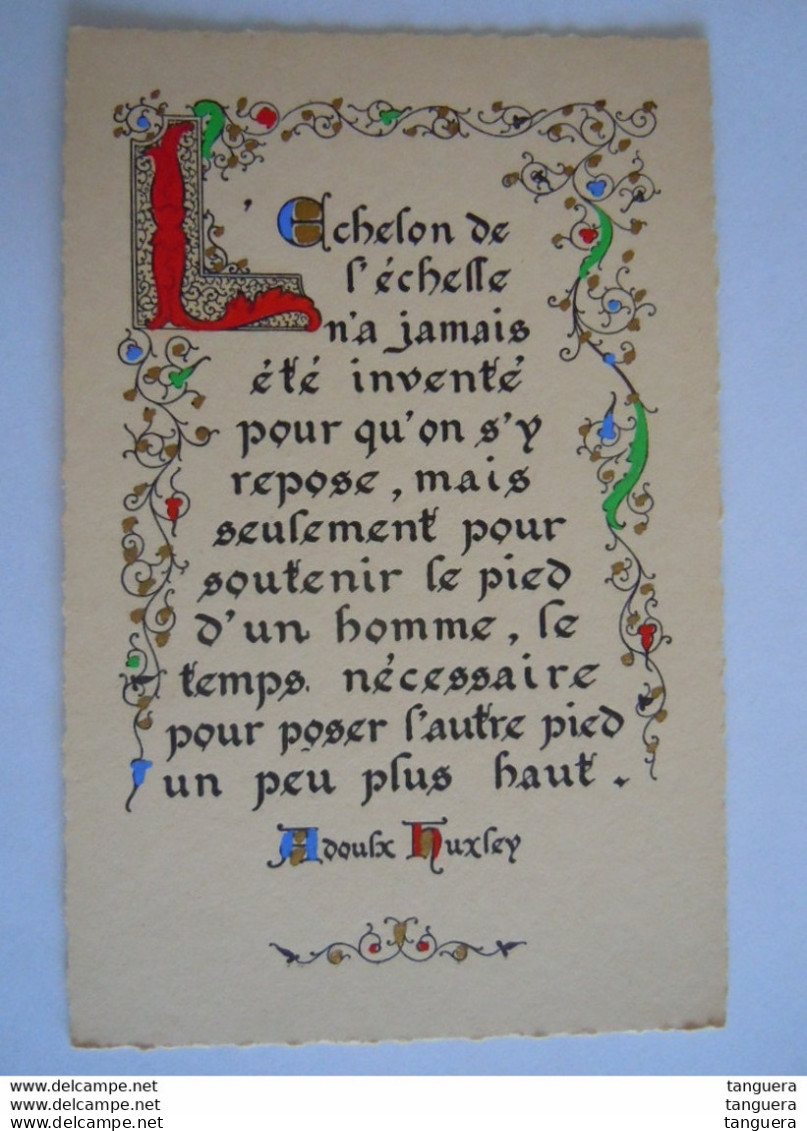 L'Echelon de
l'échelle
n'a jamais
été inventé
pour qu'on s'y
repose, mais
seulement pour
soutenir le pied
d'un homme, le
temps nécessaire
pour poser l'autre pied
un peu plus haut.
Adoulx Huxley
www.delcampe.net tanguera
www.delcampe.net tanguera
www.delcampe.net tanguera